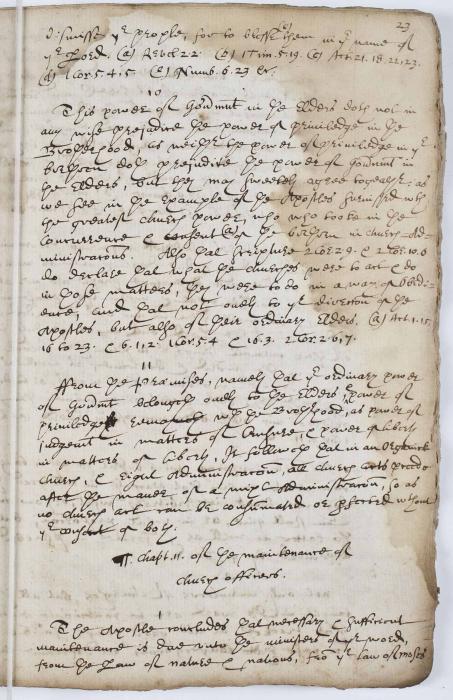 23
dismisse yᵉ people, & for to blesse (e) them in yᵉ name of
yᵉ Lord. (a) Revel 2 2. (b) 1 Tim. 5. 19. (c) Act. 21. 18. 22, 23.
(d) 1 Cor. 5. 4, 5. (e) Numb. 6. 23 &c.
10
This power of Gouᵉmnt in the Elders doth not in
any wise prejudice the power of priviledge in the
Brotherhood, as neither the power of priviledge in yᵉ
brethren doth prejudice the power of gouᵉmnt in
the Elders, but they may sweetly agree together, as
we see in the Example of the Apostles furnished wth
the greatest church power, who tooke in the
Concurrence & consent (a) of the brethren in church Ad-
ministracons. Also that scripture 2 Cor 2 9. & 2 Cor. 10. 6
do declare that what the churches were to act & do
in those matters, they were to do in a way of Obedi-
ence, and that not only to yᵉ direction of the
Apostles, but also of their ordinary Elders. (a) Act. 1. 15,
16 to 23. & 6. 1, 2. 1 Cor. 5. 4 & 16. 3. 2 Cor. 2. 6, 7.
11
From the premises, namely that yᵉ ordinary power
of Gouᵉmnt belongeth only to the Elders, power of
priviledge remaineth with the Brotherhood, as power of
Judgemt in matters of Censure, & power of liberty
in matters of liberty, It followeth that in an Organick
church, & right Administracon, all church acts proceed
after the manner of a mixt Administracon, so as
no church act can be consumated or pfected without
yᵉ consent of both.
¶. Chapt. 11. of the maintenance of
church officers.
1
The Apostle concludes that necessary & sufficient
maintenance is due unto the ministers of yᵉ word,
from the Law of nature & nations, frõ yᵉ law of moses